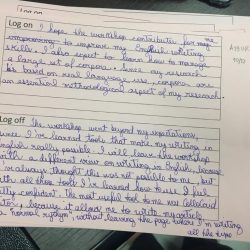 Log on
Log on I hope the workshop contributes for me
improving to improve my English writing
skills. I also expect to learn how to manage
a large set of corpora. Since my research
is based on real language use, corpora are
an essential methodological aspect of my research.
Log off The workshop went beyond my expectations,
since I've learned tools that make my writing in
English really possible. I will leave the workshop
with a different view on writing in English, because
I've always thought this was not possible to me, but
with all those tools I've learned how to use I feel
confident. The most useful tool to me was Collocaid
because it allows me to write my article
"normal rhythm", without leaving the page where I'm writing
all the time